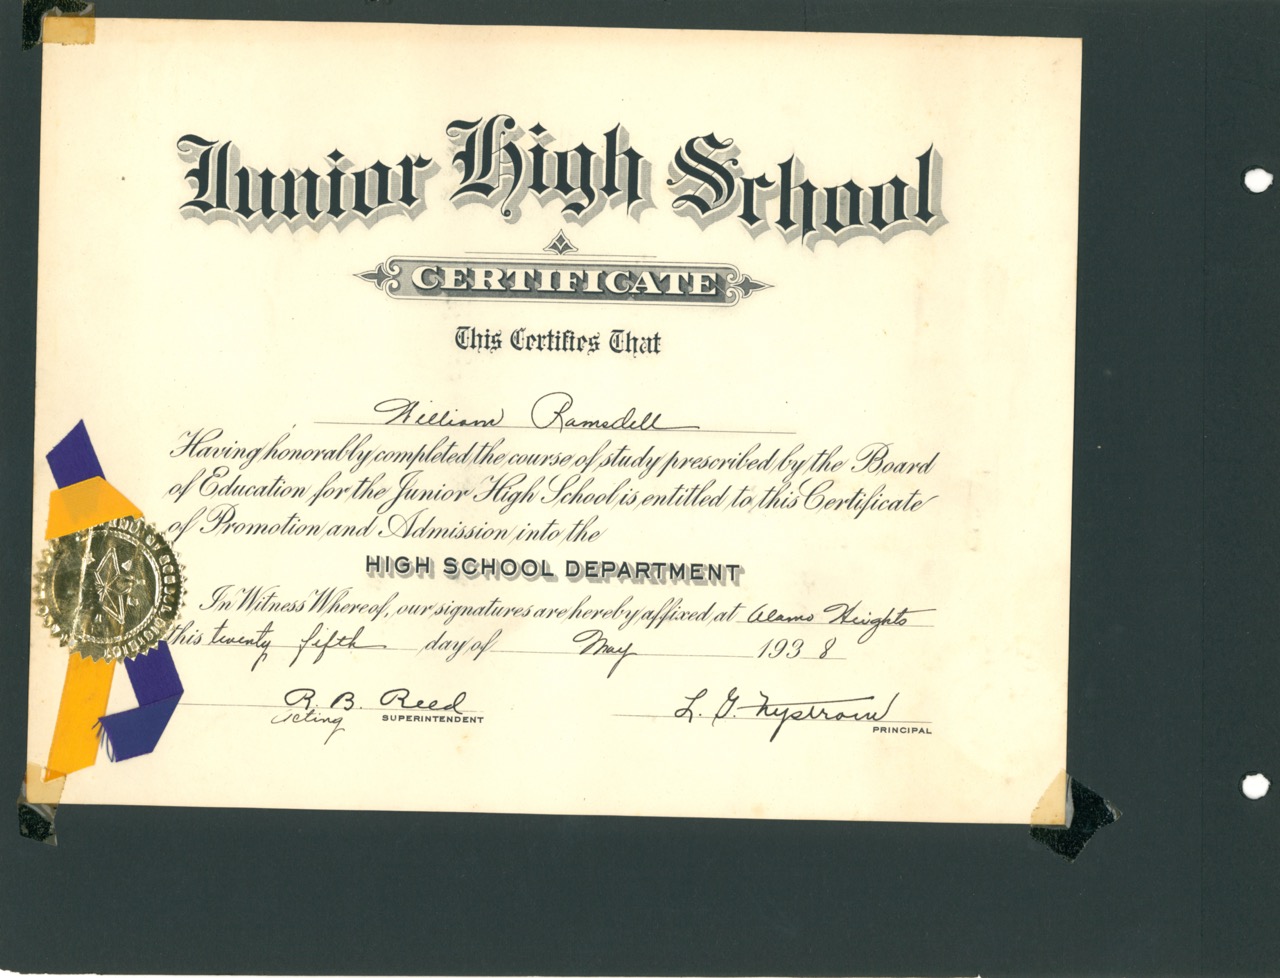 Junior High School
CERTIFICATE
This Certifies That
William Ramsdell
Having honorably completed the course of study prescribed by the Board
of Education for the Junior High School is entitled to this Certificate
of Promotion and Admission into the
HIGH SCHOOL DEPARTMENT
In Witness Whereof, our signatures are hereby affixed at Alamo Heights
this twenty fifth day of May 1938
R. B. Reed L. G. Nystrom
Acting SUPERINTENDENT PRINCIPAL